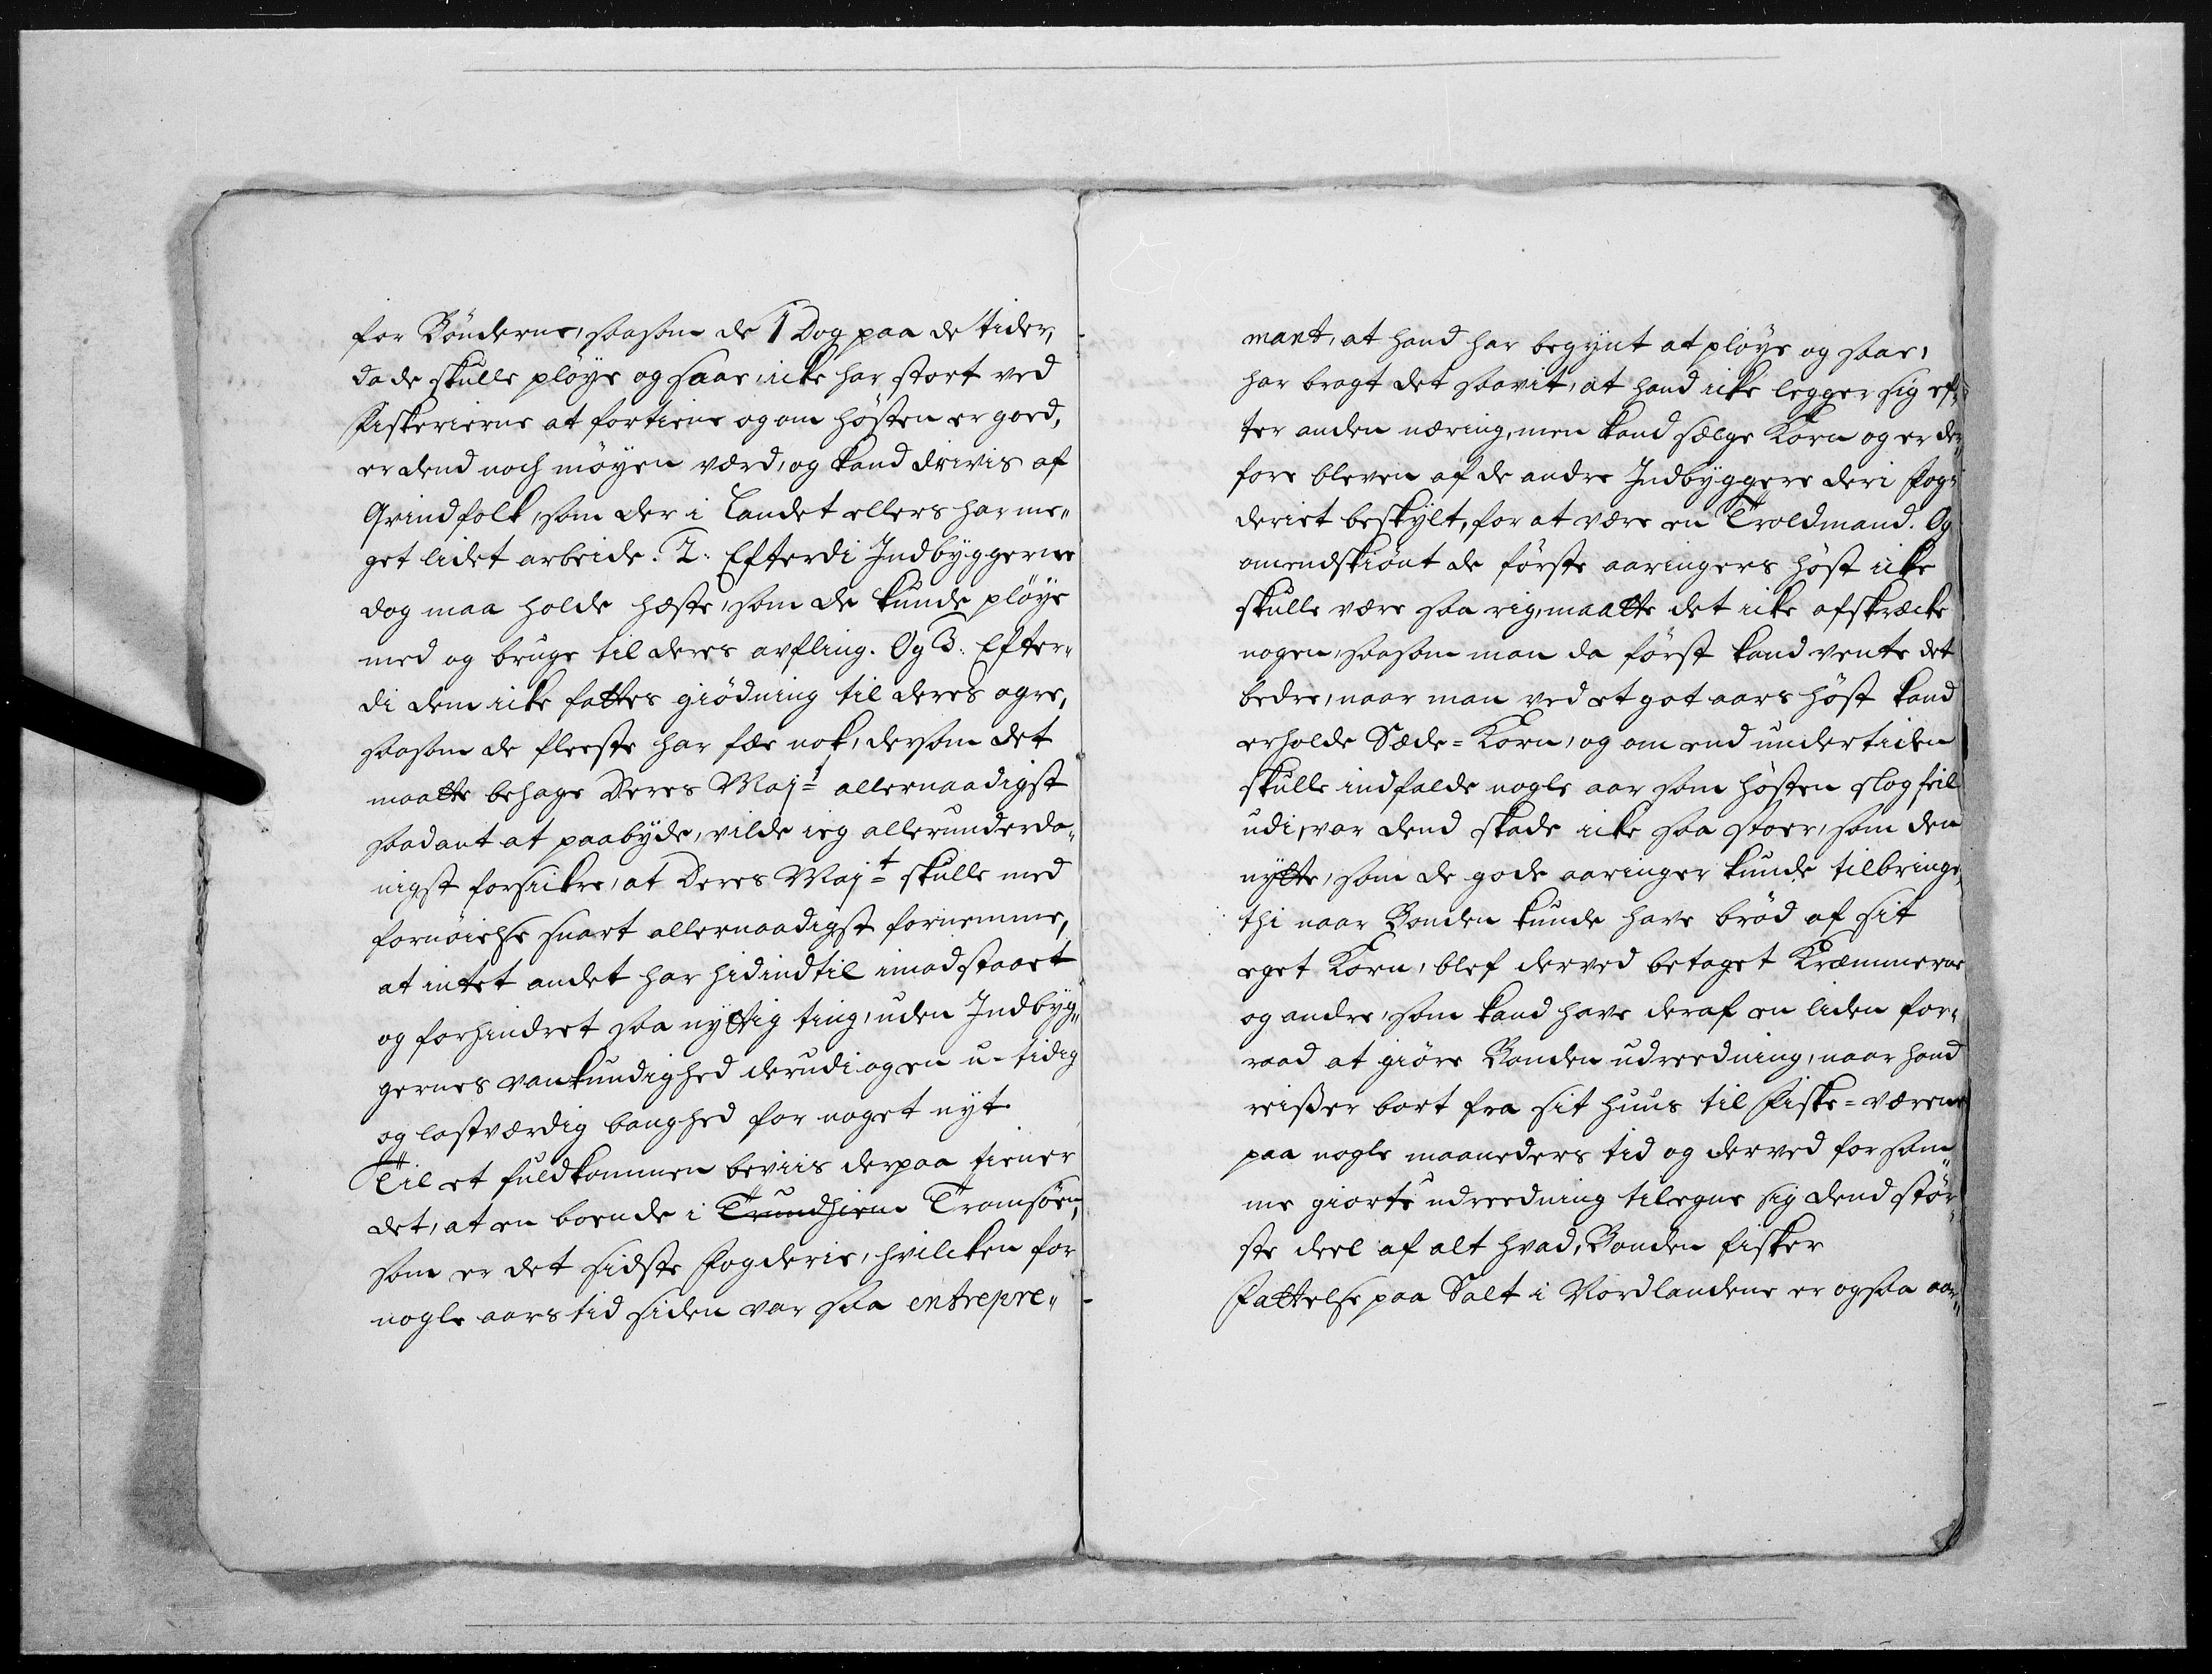 for Bønderne, saasom de 1 Dog paa de tider,
da de skulle pløye og saae, icke har stort ved
Fiskerierne at fortiene og om høsten er goed,
er dend noch møyen værd, og kand drivis af
Qvindfolk, som der i Landet ellers har me„
get lidet arbeide. 2. Efterdi Indbyggerne
dog maa holde heste, som de kunde pløye
med og bruge til deres avfling. Og 3. Efter„
di dem icke fattes giødning til deres agre,
saasom de fleeste har fæe nok, dersom det
maatte behage Deres Maj.t allernaadigst
saadant at paabyde, vilde ieg allerunderda„
nigst forsickre, at Deres Maj.t skulle med
fornøielse snart allernaadigst fornemme,
at intet andet har hidindtil imodstaaet
og forhindret saa nyttig ting, uden Indbyg„
gernes vankundighed derudi og en u-tidig
og lastværdig banghed for noget nyt.
Til et fuldkommen beviis derpaa tiener
det, at en boende i Trundhiem Tromsøen,
som er det sidste Fogderie, hvilcken for
nogle aars tid siden var saa entrepre„
nant, at hand har begynt at pløye og saae,
har bragt det saavit, at hand icke legger sig ef„
ter anden næring, men kand sælge Korn og er der„
fore bleven af de andre Indbyggere deri Fog„
deriet beskylt, for at være en Troldmand. Og
omendskiønt de første aaringers høst icke
skulle være saa rig, maatte det icke afskræcke
nogen, saasom man da først kand vente det
bedre, naar man ved et got aars høst kand
erholde Sæde=Korn, og om end undertiden
skulle indfalde nogle aar som høsten slog feil
udi, var dend skade icke saa stoer, som den
nytte, som de gode aaringer kunde tilbringe,
thi naar Bonden kunde have brød af sit
eget Korn, blef derved betaget Kræmmerne
og andre, som kand have deraf en liden for„
raad at giøre Bonden udreedning, naar hand
reisser bort fra sit huus til Fiske=værene
paa nogle maaneders tid og derved for sam„
me giorte udreedning tilegne sig dend stør„
ste deel af alt hvad, Bonden fisker
Fattelse paa Salt i Nordlandene er ogsaa aar„